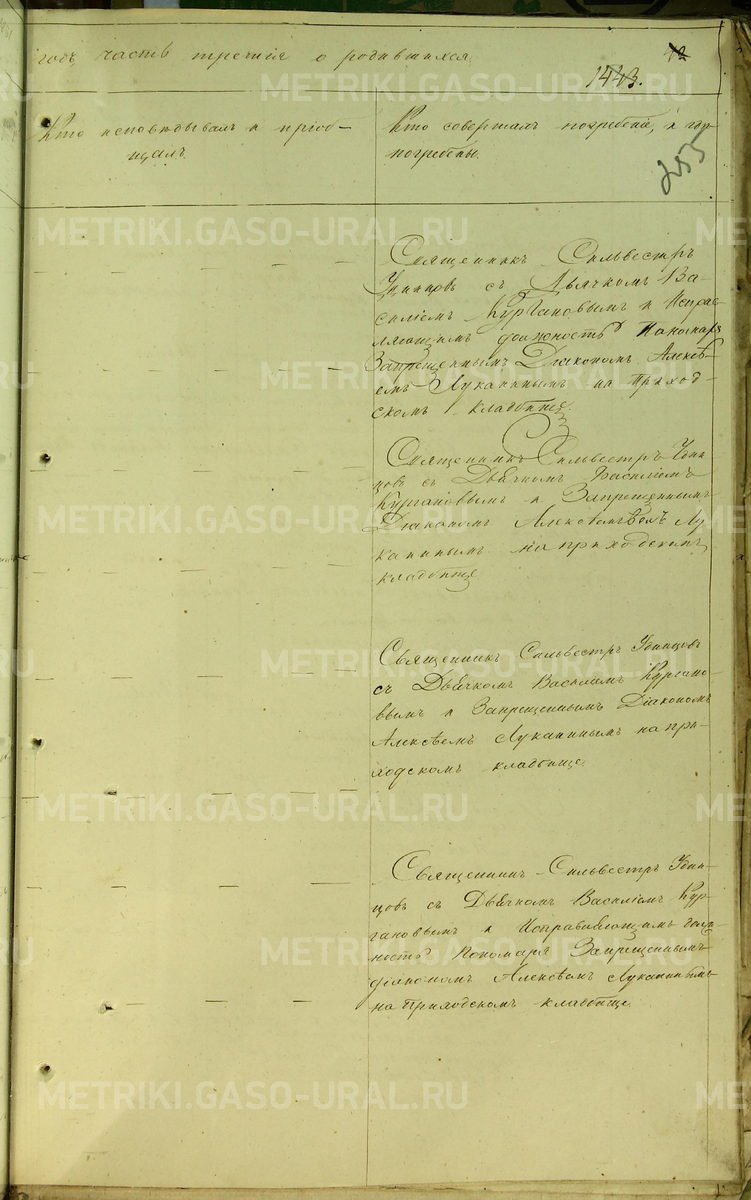 годъ, часть третія о родившихся.
42
1443.
Кто исповѣдывалъ и пріоб-
щалъ.
Кто совершалъ погребеніе, и гдѣ
погребены.
255
Священникъ Сильвестръ
Удинцовъ съ Дьячкомъ Ва-
силіемъ Кургановымъ и Исправ-
ляющимъ должность Пономаря
Запрещеннымъ Діакономъ Алексѣ-
емъ Луканинымъ на Приход-
скомъ кладбищѣ.
Священникъ Сильвестръ Удин-
цовъ съ Дьячкомъ Василіемъ
Кургановымъ и Запрещеннымъ
Діакономъ Лу-
канинымъ на приходскомъ
кладбище
Священникъ Сильвестръ Удинцовъ
съ Дьячкомъ Василіемъ Кургано-
вымъ и Запрещеннымъ Діакономъ
Алексѣемъ Луканинымъ на при-
ходскомъ кладбище.
Священник Сильвестръ Удин-
цовъ съ Дьячкомъ Василіемъ Кур-
гановымъ и Исправляющимъ долж-
ность Пономаря Запрещеннымъ
діакономъ Луканинымъ
на Приходскомъ кладбище.
METRIKI.GASO-URAL.RU